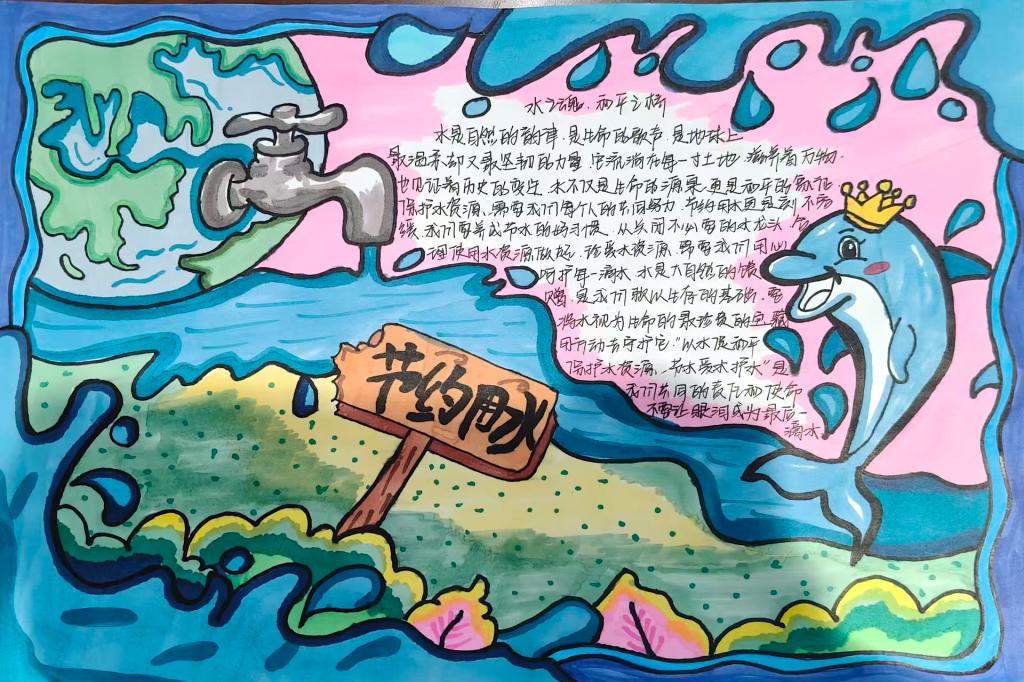 水之魂·和平之桥
水是自然的韵律.是生命的歌声.是地球上
最温柔却又最坚韧的力量.它流淌在每一寸土地.滋养着万物.
也见证着历史的变迁.水不仅是生命的源泉.更是和平的象征
保护水资源、需要我们每个人的共同努力.节约用水更是刻不容
缓.我们要养成节水的好习惯、从关闭不必要的水龙头.合
理使用水资源做起.珍爱水资源.需要我们用心
呵护每一滴水.水是大自然的馈
赠.是我们赖以生存的基础.要
将水视为生命的最珍贵的宝藏
用行动去守护它."以水促和平
保护水资源、节水爱水护水"是
我们共同的责任和使命
不要让眼泪成为最后一
滴水.
节约用水